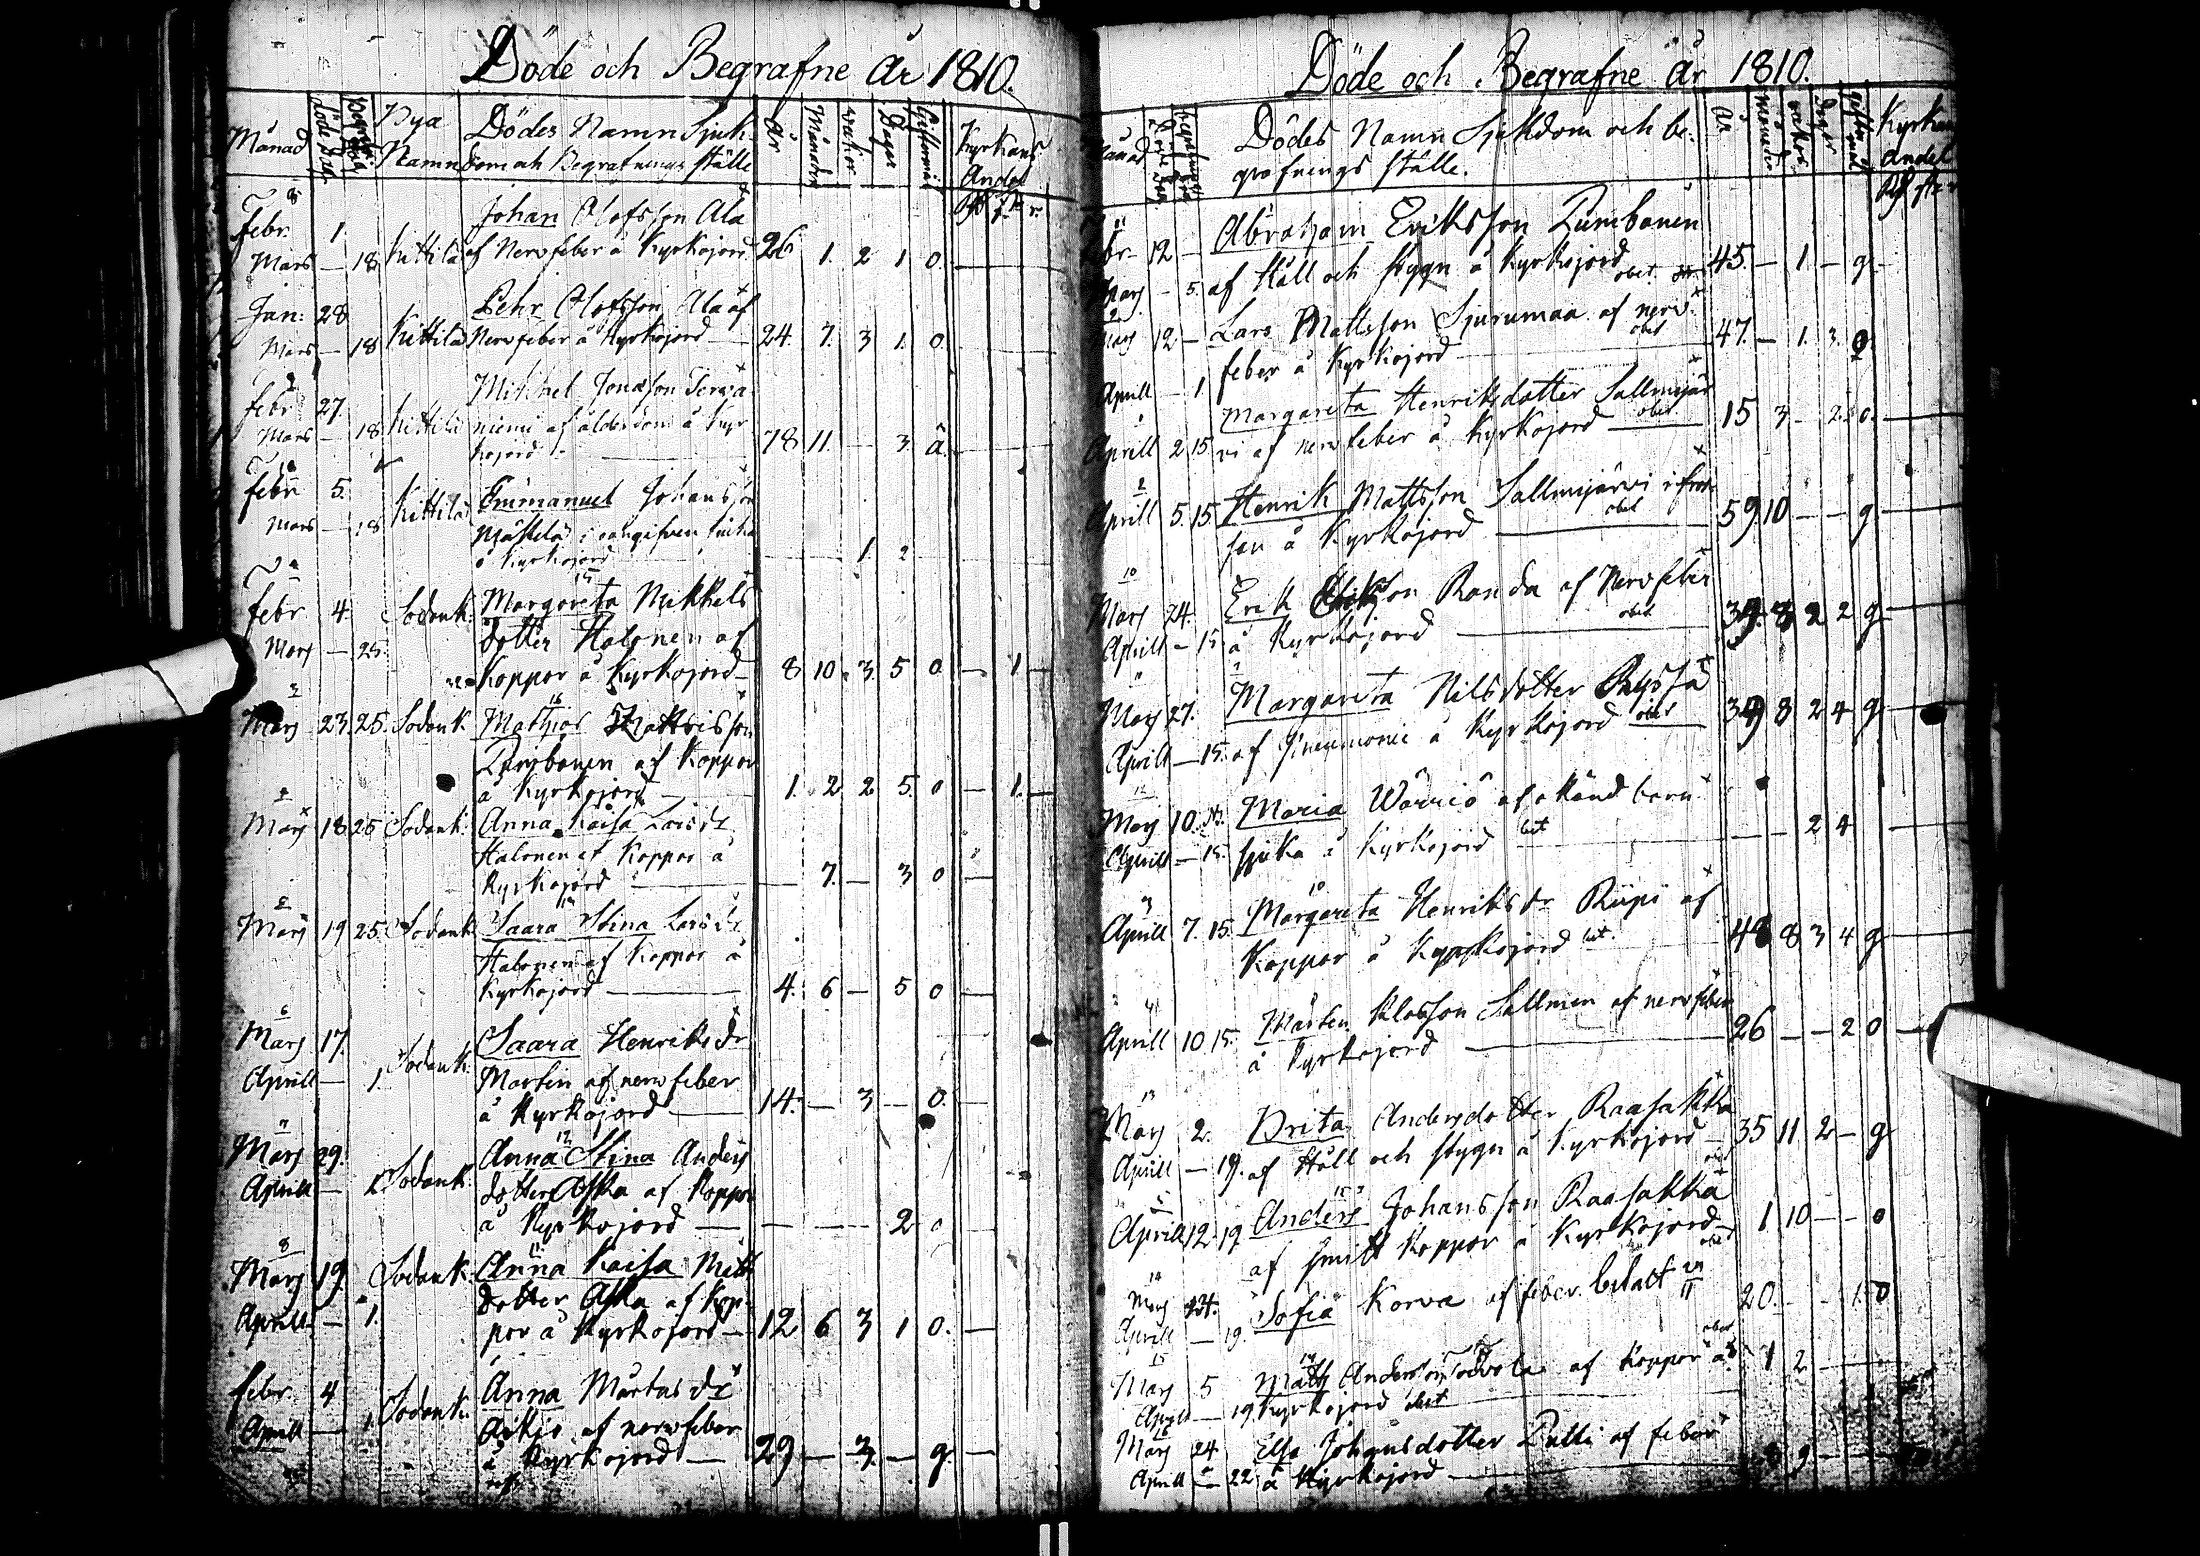 Döde och Begrafne År 1810.
Månad
Död dag
Bya Namn
Dödes Namn Sjuk-
dom och Begrafnings ställe
År
Månader
Veckor
Dagar
Kyrkans Andel
8
Febr. 1
Mars — 18 Kittilä
Johan Olofsson Ala
af Nervfeber å Kyrkojord 26 1. 2 1 0.
Jan: 28
Mars — 18 Kittilä
Pehr Olofsson Ala af
Nervfeber å Kyrkojord — 24. 7. 3 1. 0.
9
Febr 27.
Mars — 18 Kittilä
Michel Jonasson Terva
niemi af ålderdom å Kyr
kojord 78 11. — 3. Ä.
10
Febr 5.
Mars — 18 Kittilä
Emmanuel Johansson
Måkelä
å Kyrkojord — — 1. 2
Febr 4.
Mars — 25. Sodank.
Margareta Mikkels
dotter Halonen af
Koppor å Kyrkojord 8 10. 3. 5 0 — 1 —
3
Mars 23. 25. Sodank
16
Mathias Mattsson
Pumbanen af Koppor
å Kyrkojord 1. 2 2 5. 0 — 1. —
Mars 18 25 Sodank.
Anna Kaisa Lars dr
Halonen af Koppor å
Kyrkojord — 7. — 3 0 —
Mars 19 25. Sodank
Saara Stina Lars dr
Halonen af Koppor å
Kyrkojord — 4. 6 — 5 0 —
6
Mars 17.
Aprill — 1. Sodank.
Saara Henriks dr
Martin af nervfeber
å Kyrkojord — 14. — 3 — 0.
7
Mars 29.
Aprill — 1. Sodank.
12
Anna Stina Anders
dotter Aska af Koppor
å Kyrkojord — — — — 2 0
8
Mars 19.
Aprill — 1. Sodank.
11
Anna Kaisa Matts
dotter Aska af Kop-
por å Kyrkojord — 12 6 3 1 0. —
Febr 4
Aprill — 1. Sodank.
Anna Mårtas dr
Arkjo af nervfeber
å Kyrkojord — 29 — 3. — g. —
Döde och Begrafne År 1810.
Månad
Dödes Namn Sjukdom och be-
grafnings ställe.
År
Månader
veckor
Dagar
Kyrkans
andel
11
Febr. 12 —
Mars — 5.
Abraham Eriksson Pumbanen
af Håll och stygn å Kyrkojord obet. 45. — 1. — g.
Mars 12 —
Aprill — 1
Lars Mattsson Sjurumaa af nerv-
feber å Kyrkojord — obet 47. — 1. 3. g
Aprill 2 15
Margareta Henriksdotter Sallmijär
vi af nervfeber å Kyrkojord — obet. 15 3 — 2. 0. —
2
Aprill 5. 15.
Henrik Mattsson Sallmijärvi
å Kyrkojord — obet 59. 10 — — g —
10
Mars 24.
Aprill — 15
Erik Eriksson Randa af Nervfeber
å Kyrkojord — obet 39. 8 2 2 g —
11
Mars 27.
Aprill — 15.
Margareta Nilsdotter
af Pneumonie å Kyrkojord obet 39 8 2 4 g —
12
Mars 10.
Aprill — 15.
Maria Wärriö af okänd barn
sjuka å Kyrkojord bet — — 2 4
3
Aprill 7. 15.
10
Margareta Henriks dr Riipi af
Koppor å Kyrkojord bet. 48 8 3 4 g —
4
Aprill 10 15.
Mårten Klasson Sallmen af nervfeber
å Kyrkojord — 26 — — 2 0 —
13
Mars 2.
Aprill — 19.
Brita Andersdotter Raasakka
af Håll och stygn å Kyrkojord — 35 11 2 — g
5
Aprill 12. 19
Anders Johansson Raasakka
af smitt Koppor å Kyrkojord obet 1 10 — — 0
14
Mars 24.
Aprill — 19.
Sofia Korva af feber betalt 20. — — 1. 0
15
Mars 5
Aprill — 19.
Matts Andersson af Koppor å
Kyrkojord obet 1 2 — —
16
Mars 24
Aprill — 22.
Elsa Johansdotter Pulli af feber
å Kyrkojord — 8 9 — —